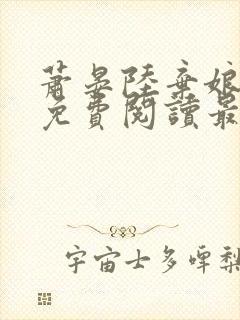 蕭晏陸棄娘
免費閱讀最
宇宙士多啤梨